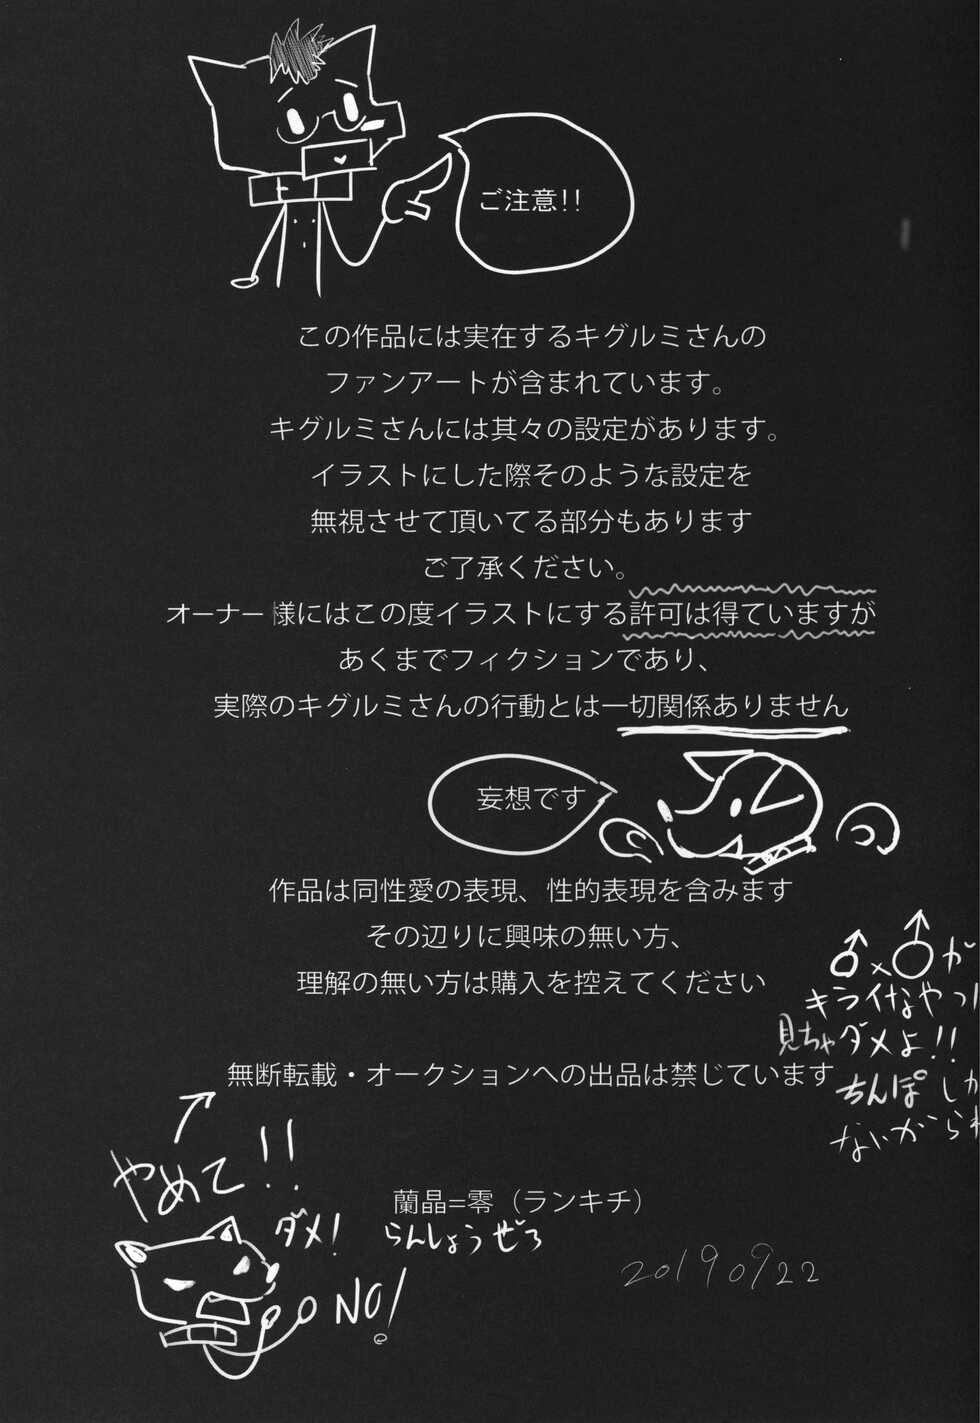 ご注意!!
この作品には実在するキグルミさんの
ファンアートが含まれています。
キグルミさんには其々の設定があります。
イラストにした際そのような設定を
無視させて頂いてる部分もあります
ご了承ください。
オーナー様にはこの度イラストにする許可は得ていますが
あくまでフィクションであり、
実際のキグルミさんの行動とは一切関係ありません
妄想です
作品は同性愛の表現、性的表現を含みます
その辺りに興味の無い方、
理解の無い方は購入を控えてください
♂×♂が
キライなやつ
見ちゃダメよ!!
ちんぽしか
ないから
無断転載・オークションへの出品は禁じています
やめて!!
ダメ!
NO!
蘭晶=零（ランキチ）
らんしょうぜろ
20190922